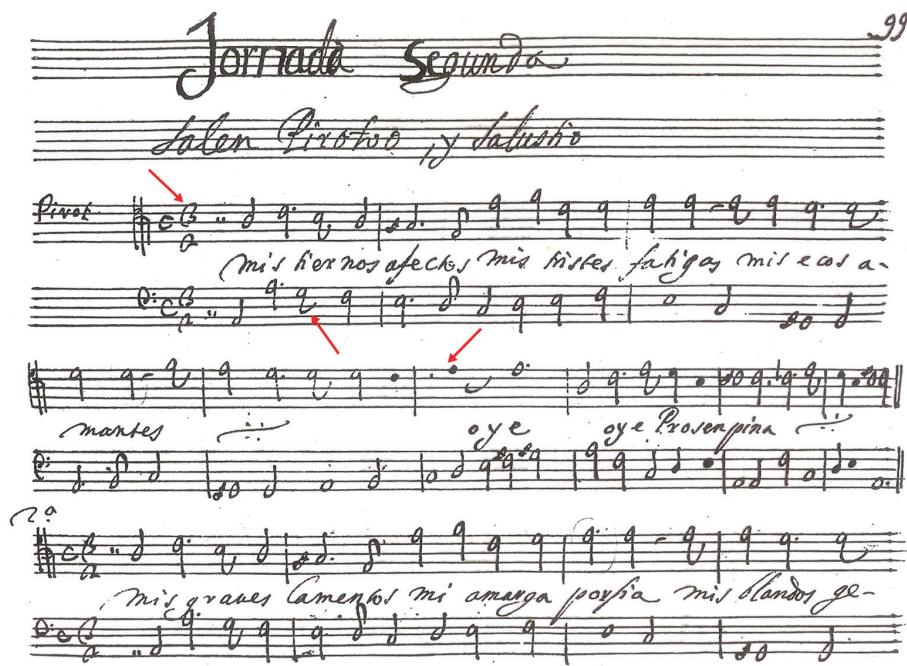 99
Jornada Segunda
Salen Pirotoo, y Salustio
Pirot.
mis tiernos afectos mis tristes fatigas mis ecos a-
mantes oye oye Prosenpina
2ª
mis graves lamentos mi amarga porfia mis blandos ge-